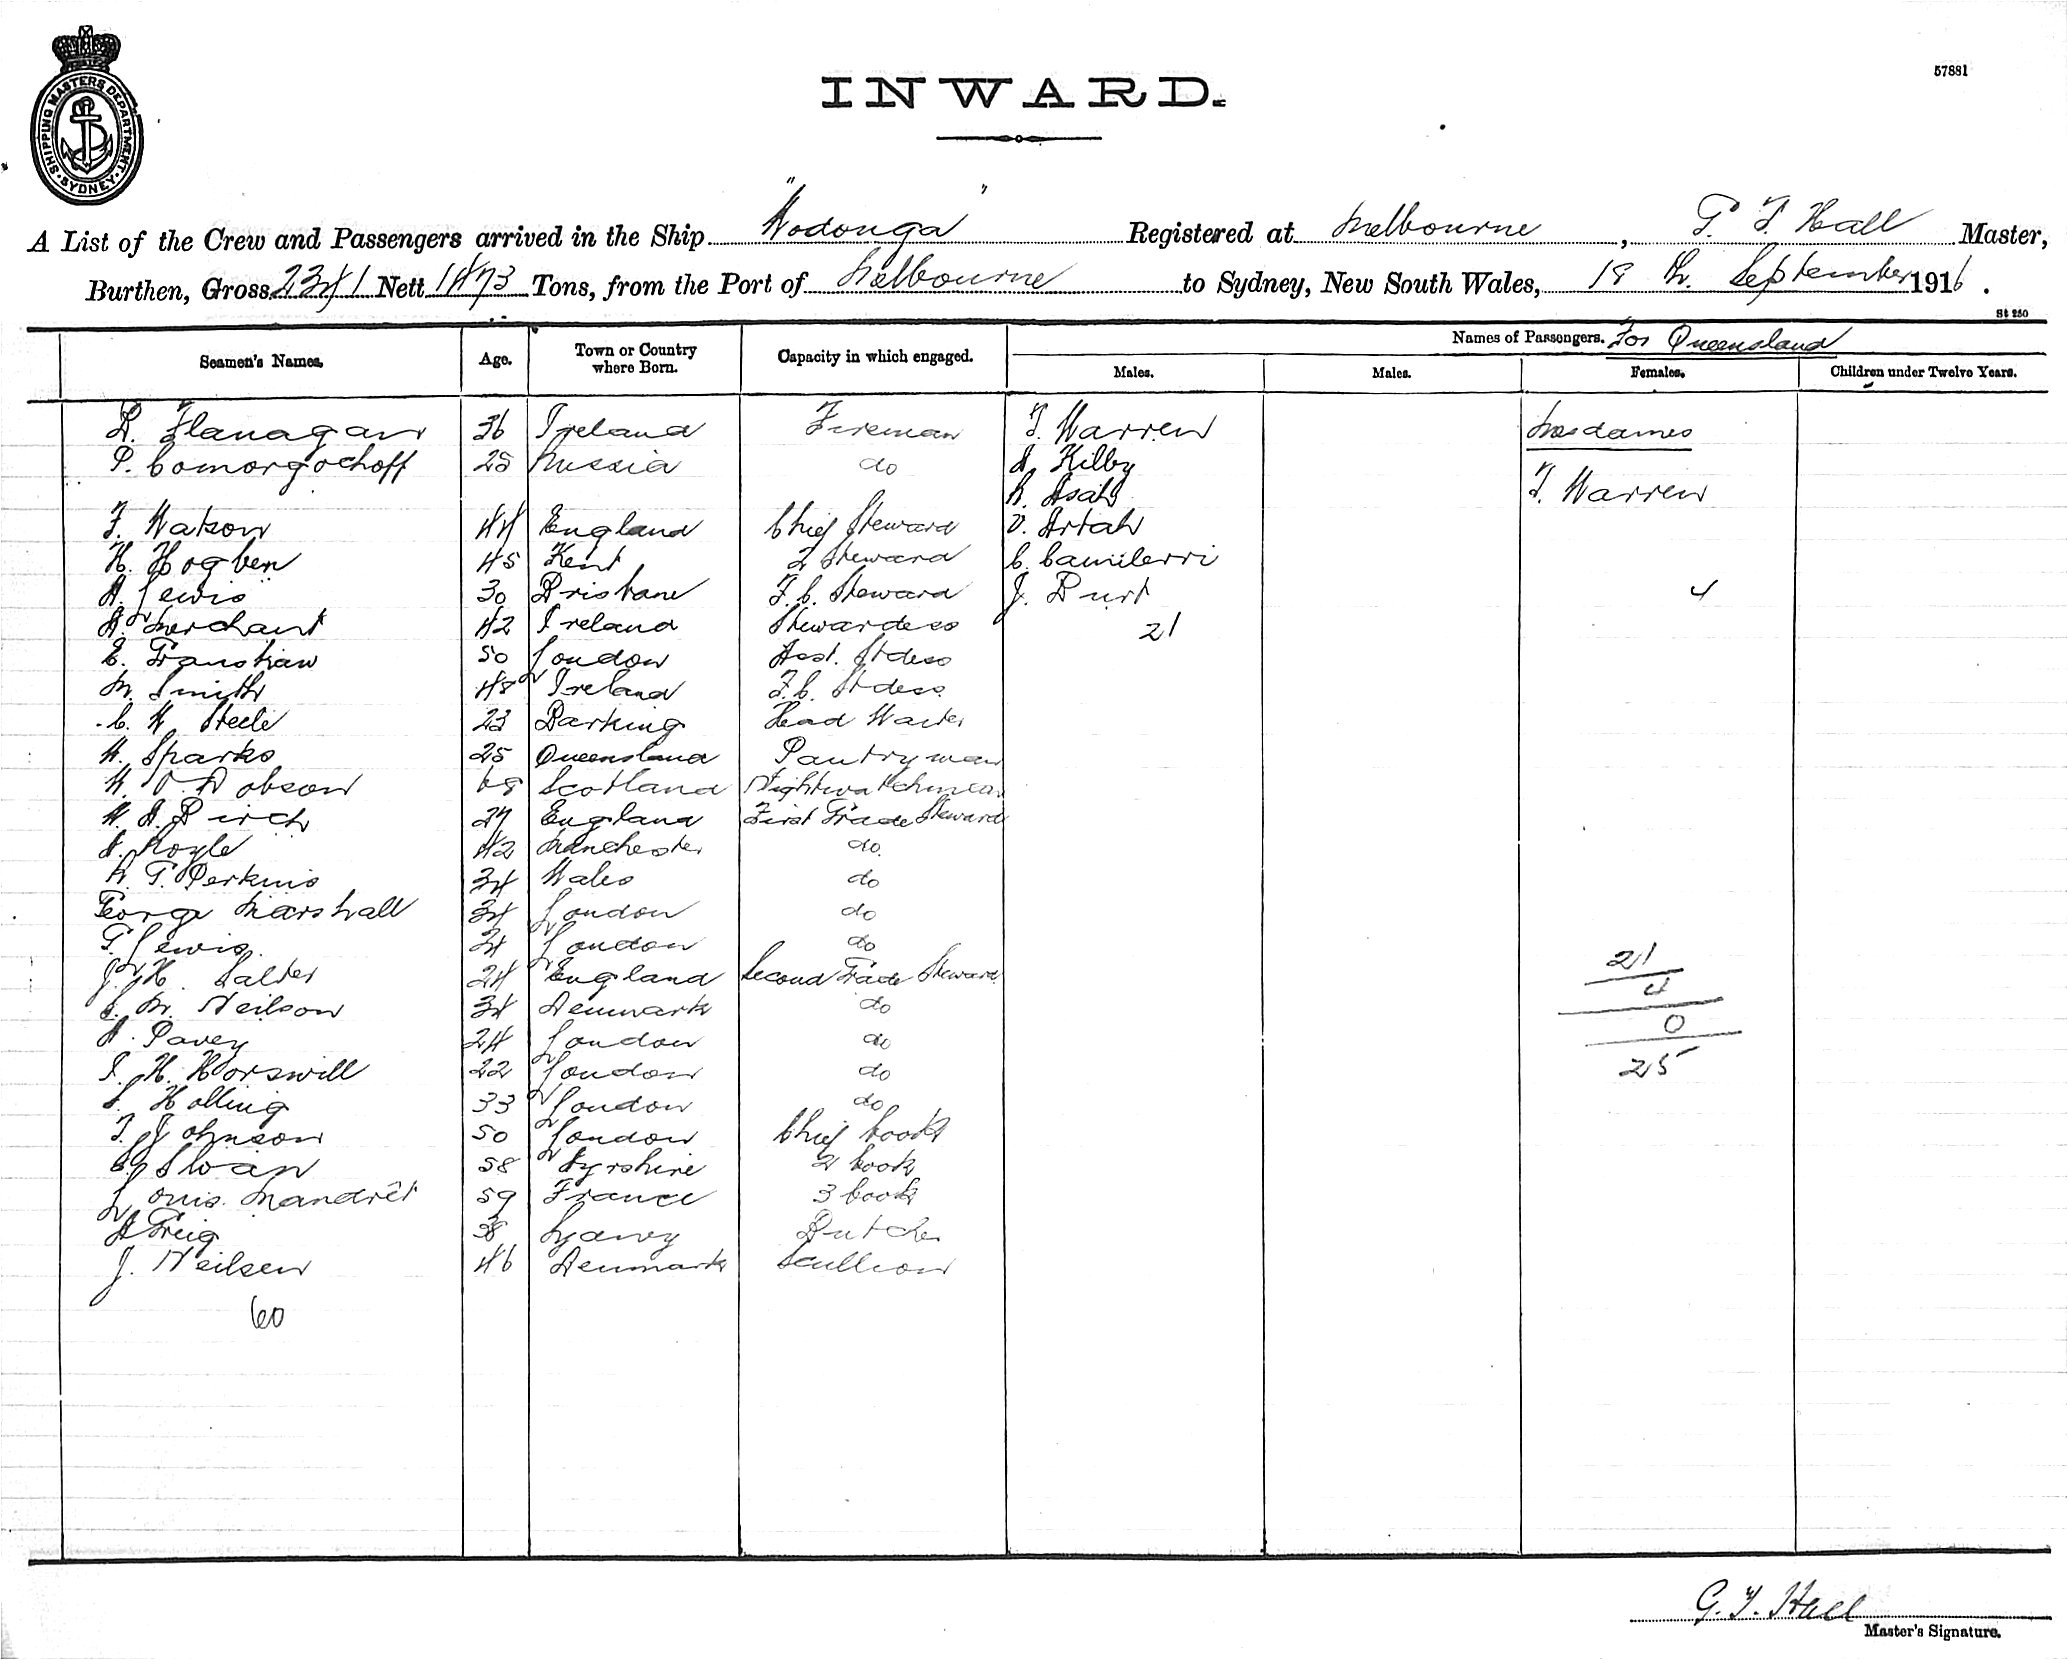 SHIPPING MASTERS DEPARTMENT. SYDNEY.
57881
INWARD.
A List of the Crew and Passengers arrived in the Ship "Wodonga" Registered at Melbourne, G. T. Hall Master,
Burthen, Gross 2341 Nett 1473 Tons, from the Port of Melbourne to Sydney, New South Wales, 18 th. September 1916.
St 250
Names of Passengers. For Queensland
Seamen's Names. Age. Town or Country where Born. Capacity in which engaged. Males. Males. Females. Children under Twelve Years.
R. Flanagan 36 Ireland Fireman T. Warren Mesdames
P. Comorgochoff 25 Russia do A. Kilby
R. Asah T. Warren
F. Watson 44 England Chief Steward V. Artah
H. Hogben 45 Kent 2 Steward C. Camilerri
A. Lewis 30 Brisbane F.C. Steward J. Burt 4
A. Merchant 42 Ireland Stewardess 21
E. 50 London Asst. Stdess
M. Smith 48 Ireland F.C. Stdess.
C. W. Steele 23 Barking Head Waiter
W. Sparks 25 Queensland Pantryman
W. V. Dobson 68 Scotland Nightwatchman
W. A. Birch 27 England First Grade Steward
A. Royle 42 Manchester do.
R. G. Perkins 34 Wales do
George Marshall 34 London do
G. Lewis. London do 21
J. H. Salter 24 England Second Grade Steward. 4
S. M. Neilson 34 Denmark do 0
A. Pavey 24 London do 25
T. H. Horswill 22 London do
S. Holling 33 London do
T. Johnson 50 London Chief Cook
Sloan 58 Ayrshire 2 Cook
Louis. Mandrêt 59 France 3 Cook
A Greig 38 Sydney Butcher
J. Neilsen 46 Denmark Scullion
60
G. T. Hall
Master's Signature.